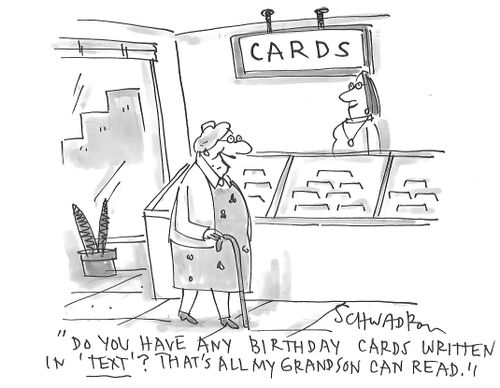 CARDS
SCHWADRON
"DO YOU HAVE ANY BIRTHDAY CARDS WRITTEN
IN 'TEXT'? THAT'S ALL MY GRANDSON CAN READ."